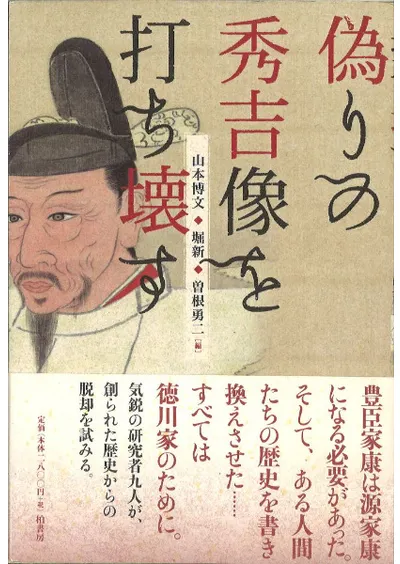 偽りの
秀吉像を
打ち壊す
山本博文◆堀新◆曽根勇二[編]
豊臣家康は源家康
になる必要があった。
そして、ある人間
たちの歴史を書き
換えさせた……
すべては
徳川家のために。
気鋭の研究者九人が、
創られた歴史からの
脱却を試みる。
定価[本体一、八〇〇円+税] 柏書房